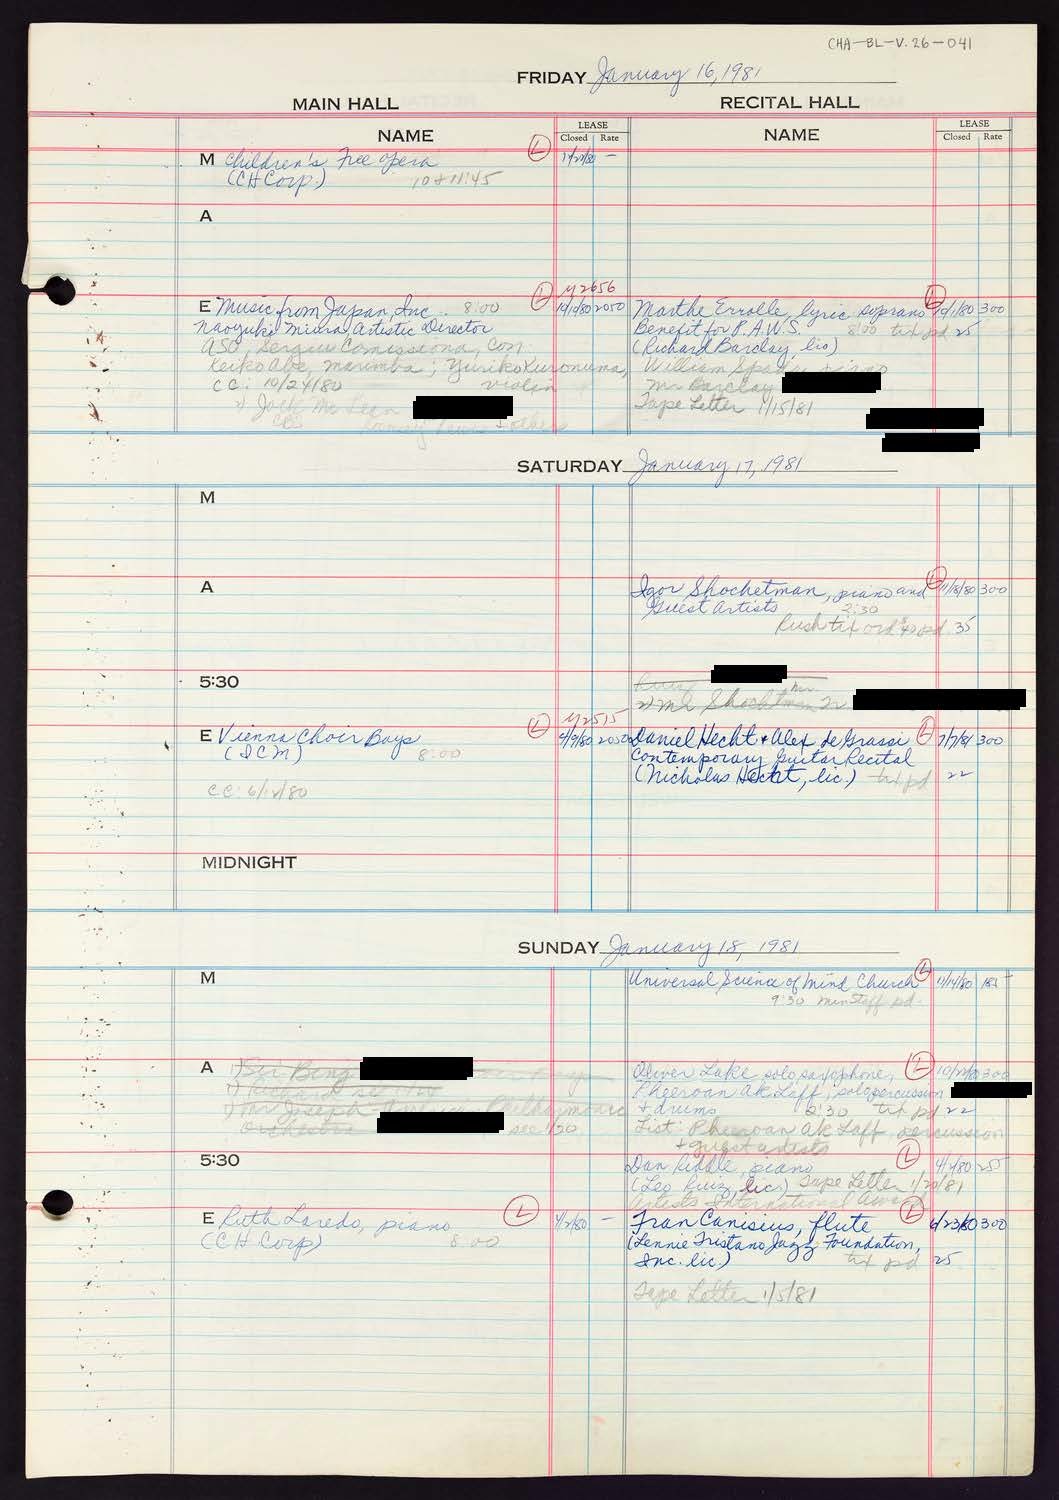 CHA-BL-V.26-041
FRIDAY January 16, 1981
MAIN HALL
RECITAL HALL
NAME
LEASE
Closed Rate
NAME
LEASE
Closed Rate
M Children's Free Opera Ⓛ
(CH Corp.) 10 + 11:45
A
E Music from Japan, Inc. 8:00 Ⓛ 2050
Naoyuki Miura, Artistic Director
ASO, Sergiu Comissiona, Con.
Keiko Abe, marimba; Yuriko Kuronuma,
violin
CC: 10/24/80
Jack McLean
Ramsey Lewis + others
Marthe Errolle, lyric soprano Ⓛ 10/1/80 300
Benefit for P.A.W.S. 8:00 tix pd 25
(Richard Barclay, lic)
William piano
Mr Barclay
Tape Letter 1/15/81
SATURDAY January 17, 1981
M
A
Igor Shochetman, piano and Ⓛ 11/18/80 300
Guest Artists 2:30
Rush tix ord $40 pd 35
5:30
Mr Shochetman
E Vienna Choir Boys Ⓛ 9/9/80 2050
(ICM) 8:00
CC: 6/12/80
Daniel Hecht + Alex de Grassi Ⓛ 300
Contemporary Guitar Recital
(Nicholas Hecht, lic.) tix pd 22
MIDNIGHT
SUNDAY January 18, 1981
M
Universal Science of Mind Church Ⓛ 11/14/80
9:30 min staff pd.
A
Philharmonic
Orchestra
Oliver Lake solo saxophone, Ⓛ 300
Pheeroan Ak Laff, solo percussion
+ drums 2:30 tix pd 22
List: Pheeroan Ak Laff, percussion
+ guest artists
5:30
Dan Riddle, piano Ⓛ 255
(Leo Ruiz, lic.) Tape Letter 1/20/81
Artists International Award
E Ruth Laredo, piano Ⓛ 4/2/80 –
(CH Corp) 8:00
Fran Canisius, flute Ⓛ 6/23/80 300
(Lennie Tristano Jazz Foundation,
Inc. lic.) tix pd 25
Tape Letter 1/5/81